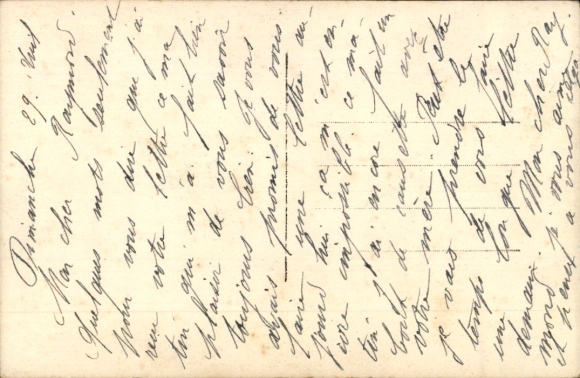 Dimanche 29. Août
Mon cher Raymond.
Quelques mots seulement
pour vous dire que j'ai
reçu votre lettre ce ma
tin qui m'a fait bien
plaisir de vous savoir
toujours bien. Je vous
avais promis de vous
faire une lettre au-
jourd'hui ça m'est en-
core impossible ce ma-
tin j'ai encore fait un
bout de causette avec
votre mère. Peut être
je vais prendre le
temps de vous faire
une longue lettre
demain. Mon cher Ray
mond je vous avais